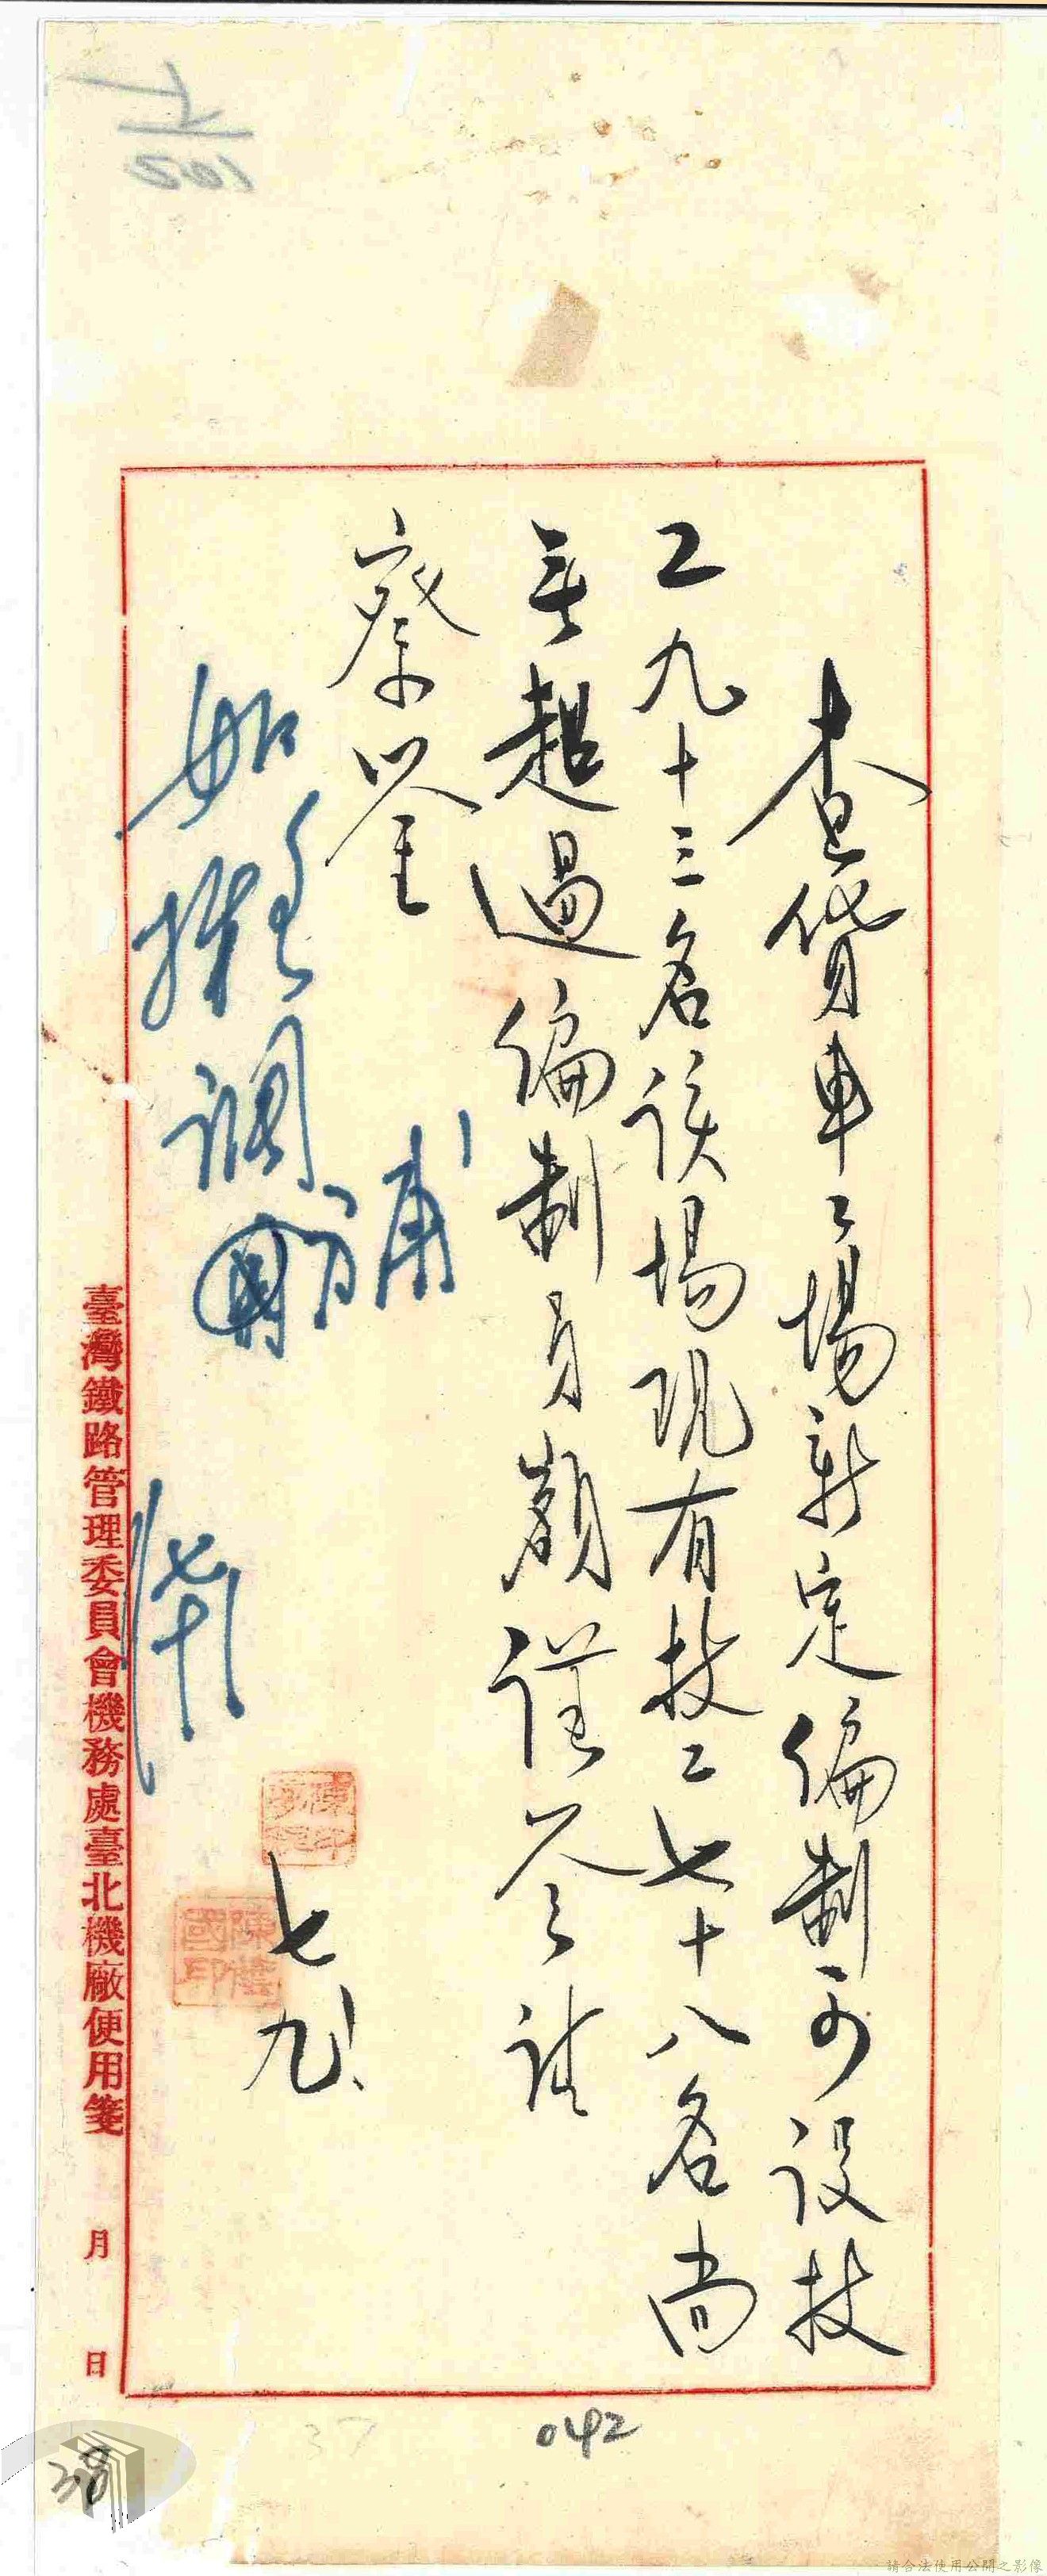 查貨車工場新定編制可設技
工九十三名該場現有技工七十八名尚
無超過編制員額謹簽請
察鑒
七九
如擬調補
臺灣鐵路管理委員會機務處臺北機廠便用箋　月　日
042
37
38
請合法使用公開之影像